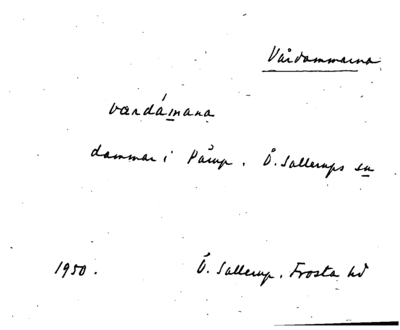 Vårdammarna
værdámana
dammar i Pårup. Ö. Sallerups sn
1950. Ö. Sallerup, Frosta hd